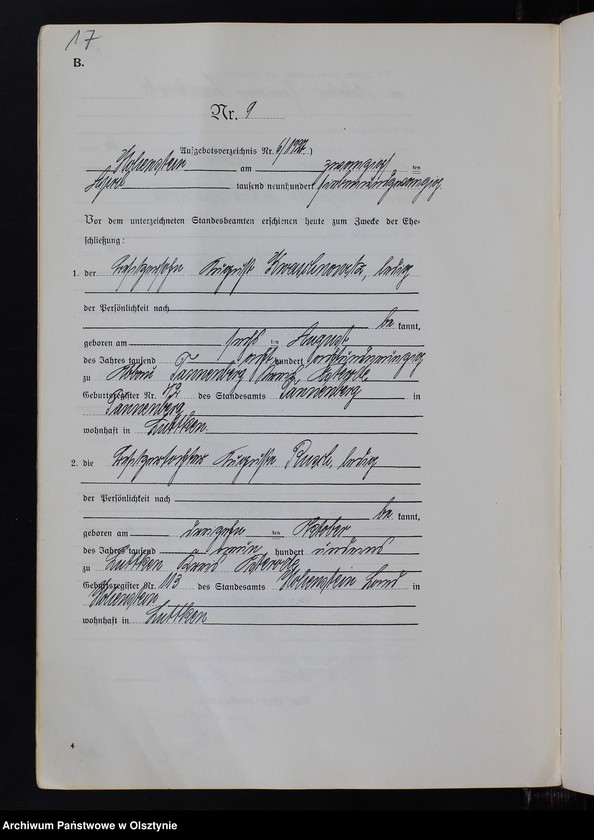 17
B.
Nr. 9
Aufgebotsverzeichnis Nr. 6/1927.)
Hohenstein am zwanzigsten
April tausend neunhundert siebenundzwanzig.
Vor dem unterzeichneten Standesbeamten erschienen heute zum Zwecke der Ehe-
schließung:
1. der Besitzersohn August, ledig
der Persönlichkeit nach
be kannt,
geboren am ten August
des Jahres tausend acht hundert
zu Tannenberg Kreis Osterode
Geburtsregister Nr. 42 des Standesamts Tannenberg in
Tannenberg
wohnhaft in Luttken
2. die Besitzertochter Auguste, ledig
der Persönlichkeit nach
be kannt,
geboren am ten Oktober
des Jahres tausend neun hundert
zu Luttken Kreis Osterode
Geburtsregister Nr. 113 des Standesamts Hohenstein Land in
Hohenstein
wohnhaft in Luttken
4
Archiwum Państwowe w Olsztynie